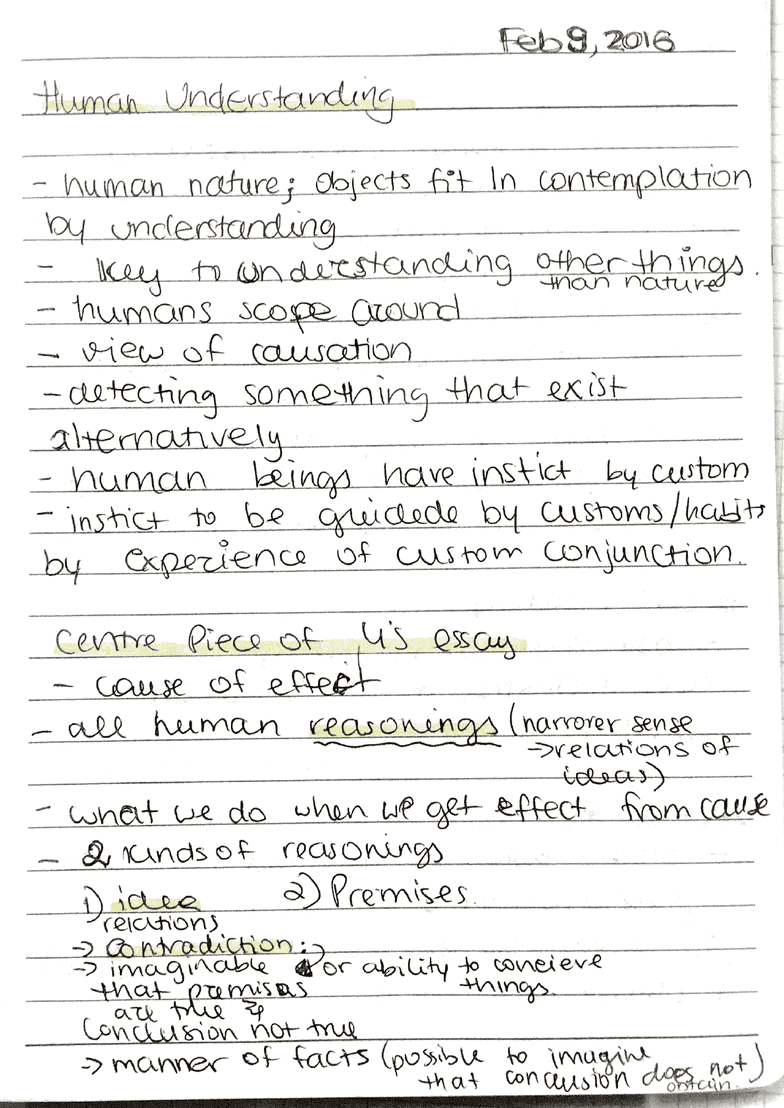 Feb 9, 2016
Human Understanding
- human nature; objects fit in contemplation
by understanding
- key to understanding other things.
than nature
- humans scope around
- view of causation
- detecting something that exist
alternatively
- human beings have instict by custom
- instict to be guidede by customs/habits
by experience of custom conjunction.
Centre Piece of 4's essay
- cause of effect
- all human reasonings (narrower sense
→relations of
ideas)
- what we do when we get effect from cause
- 2 kinds of reasonings
1) idea 2) Premises.
relations
→ Contradiction:
→ imaginable or ability to concieve
that premises things.
are true &
Conclusion not true
→ manner of facts (possible to imagine
that conclusion does not)
obtain